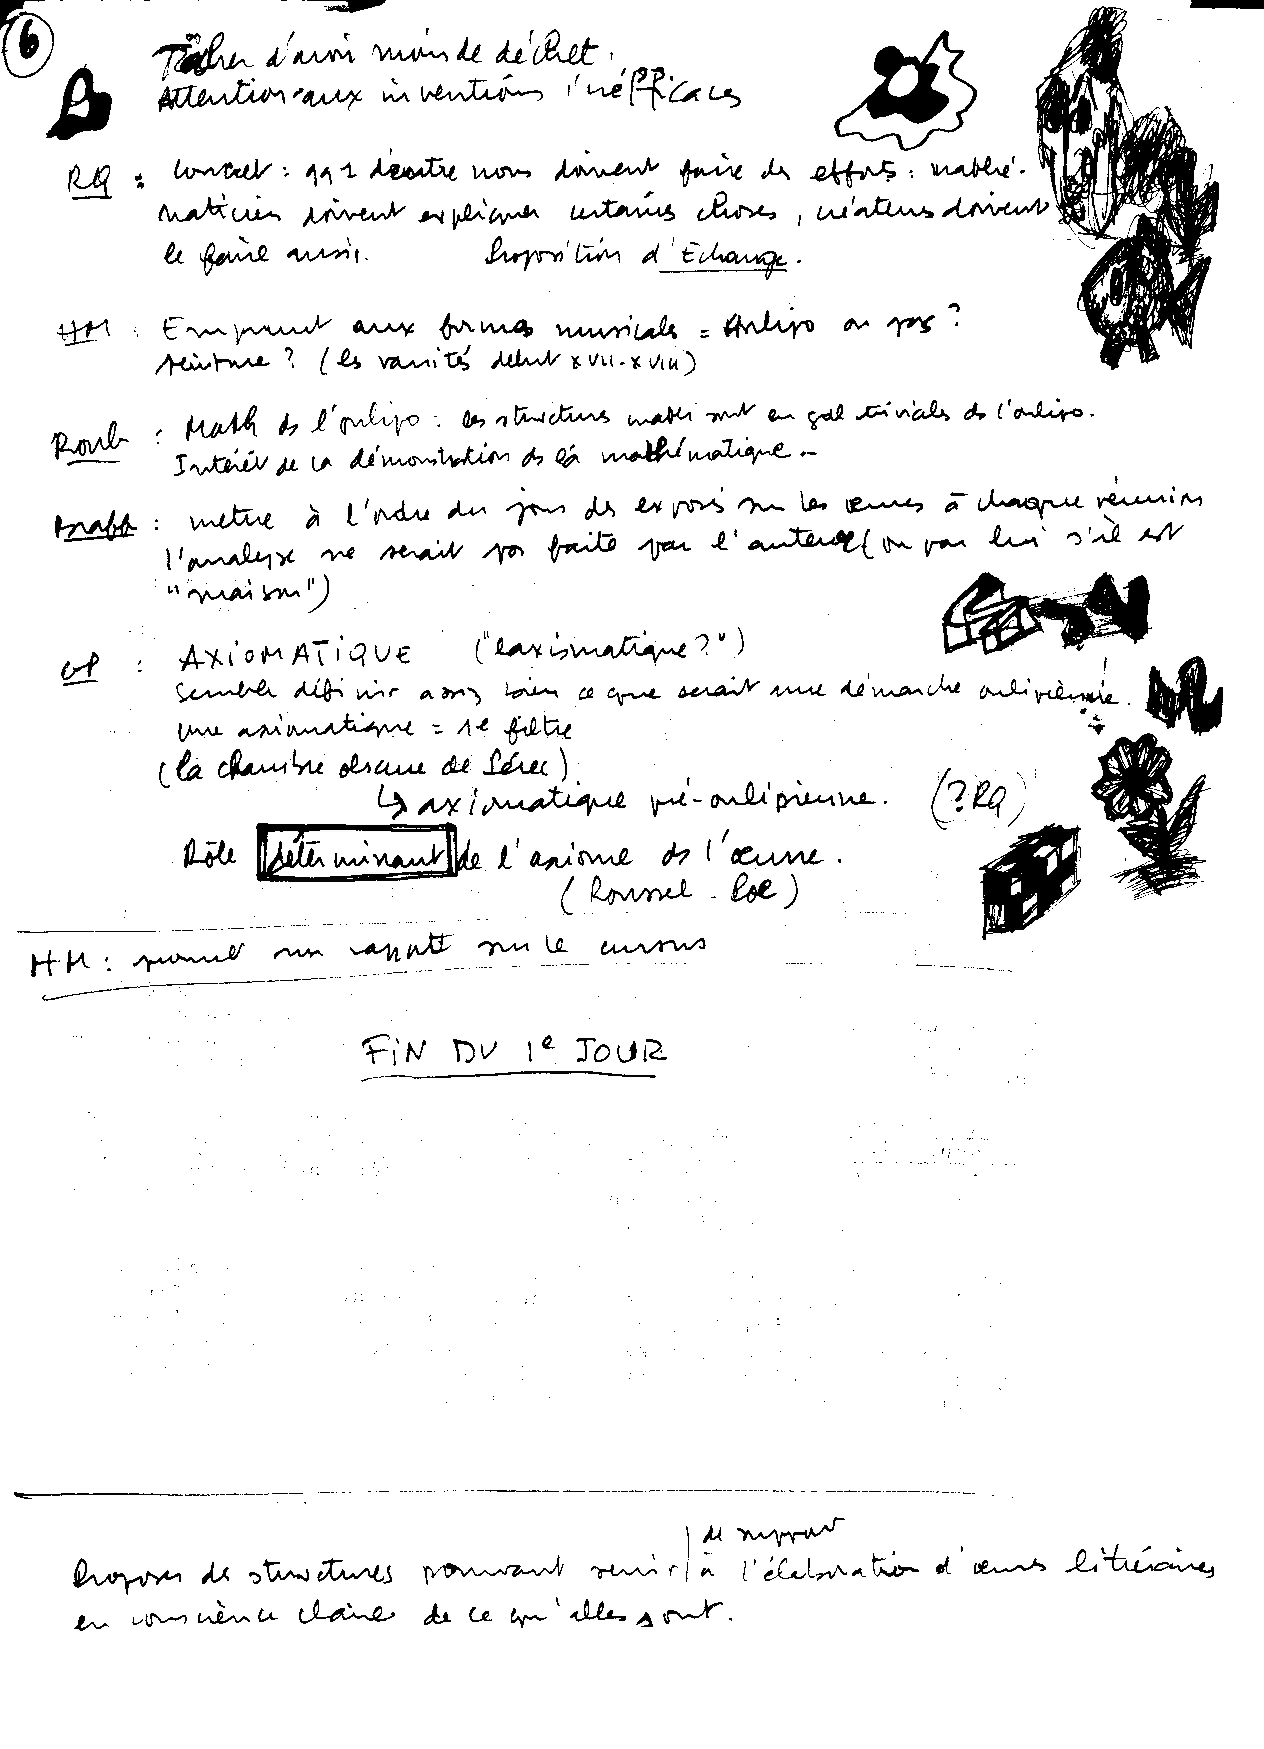 6
Tâcher d'avoir moins de déchet.
Attention aux inventions inefficaces
RQ : Concret : qq 1 d'entre nous doivent faire des efforts : mathé-
maticiens doivent expliquer certaines choses, créateurs doivent
le faire aussi. Proposition d'Echange.
HM : Emprunt aux formes musicales = Oulipo ou pas ?
peinture ? (les vanités début XVII-XVIII)
Roub : Math ds l'oulipo : les structures maths sont en gal triviales ds l'oulipo.
Intérêt de la démonstration ds la mathématique.-
Braff : mettre à l'ordre du jour des exposés sur les œuvres à chaque réunion
l'analyse ne serait pas faite par l'auteur (ou par lui s'il est
"maison")
GP : AXIOMATIQUE ("laxismatique ?")
semble définir assez bien ce que serait une démarche oulipienne.
une axiomatique = 1e filtre
(la chambre obscure de Pérec)
↳ axiomatique pré-oulipienne. (? RQ)
Rôle déterminant de l'axiome ds l'œuvre.
(Roussel - Poe)
HM : promet un rapport sur le cursus
FIN DU 1e JOUR
de support
Proposer des structures pouvant servir à l'élaboration d'œuvres littéraires
en conscience claire de ce qu'elles sont.